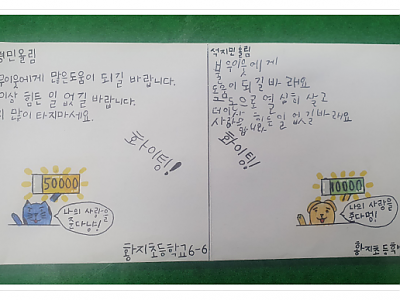 경민올림
우이웃에게 많은도움이 되길 바랍니다.
이상 힘든 일 없길 바랍니다.
많이 타지마세요.
화이팅!
50000
나의 사랑을
준다냥!
황지초등학교6-6
석지민올림
불우이웃에게
도움이 되길바래요
으로 열심히 살고
더이상 힘든일 없길바래요
사랑
합니다.
화이팅!
10000
나의 사랑을
준다멍!
황지초등학